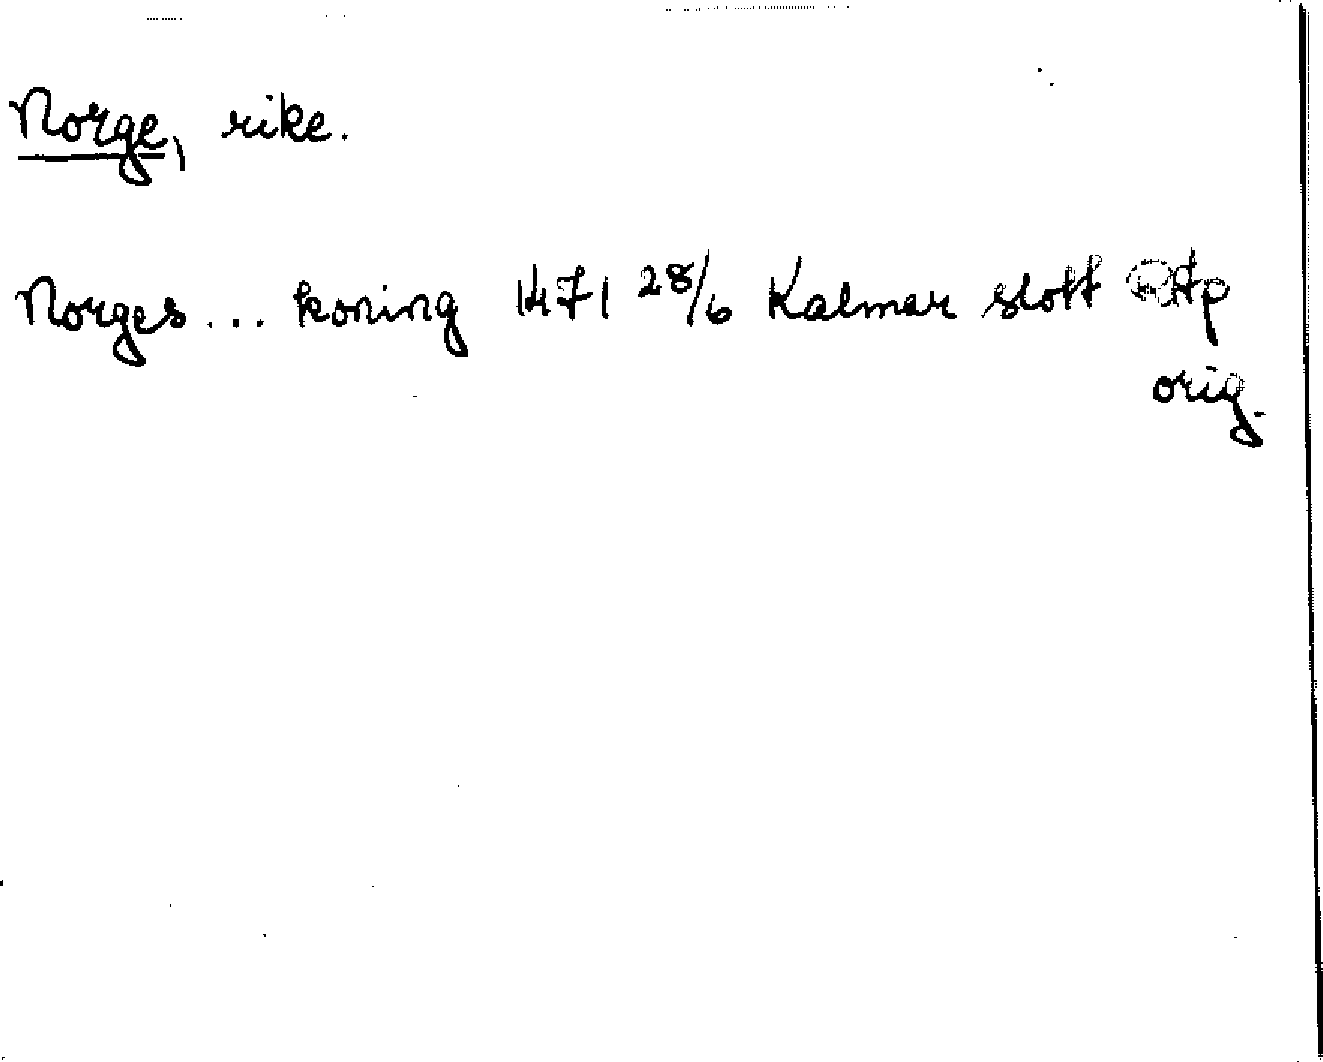 Norge, rike.
Norges ... koning 1471 28/6 Kalmar slott RAp
orig.